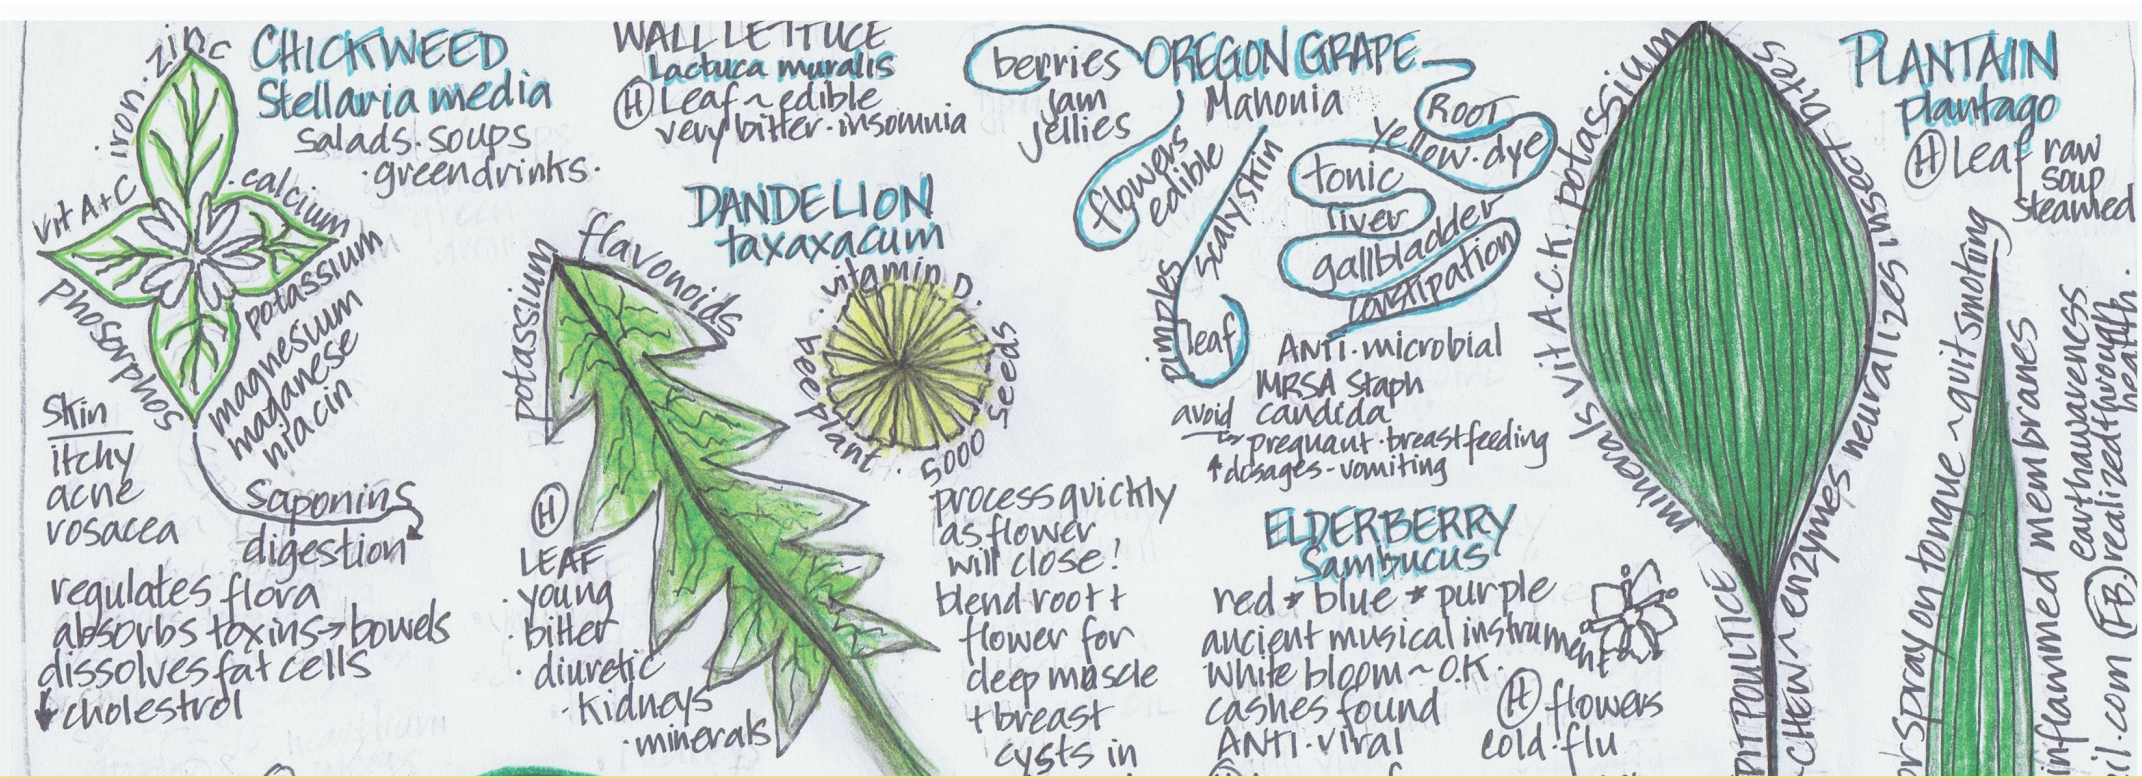 CHICKWEED
Stellaria media
salads. soups
. greendrinks.
zinc
. iron.
vit A+C
. calcium
potassium
magnesium
maganese
niacin
phosorphos
Skin
itchy
acne
rosacea
Saponins
digestion
regulates flora
absorbs toxins → bowels
dissolves fat cells
↓ cholestrol
WALL LETTUCE
Lactuca muralis
(H) Leaf ~ edible
very bitter. insomnia
DANDELION
taxaxacum
potassium
flavonoids
. vitamin D.
beeplant.
5000 seeds
(H)
LEAF
. young
. bitter
. diuretic
. kidneys
. minerals
process quickly
as flower
will close!
blend root +
flower for
deep muscle
+ breast
cysts in
OREGON GRAPE
Mahonia
berries
jam
jellies
flowers
edible
scaly skin
pimples
leaf
Root
yellow. dye
tonic
liver
gallbladder
constipation
ANTI. microbial
MRSA Staph
candida
avoid
pregnant. breastfeeding
↑ dosages - vomiting
ELDERBERRY
Sambucus
red * blue * purple
ancient musical instrument
white bloom ~ O.K.
cashes found
ANTI. viral
(H) flowers
cold. flu
PLANTAIN
plantago
(H) Leaf
raw
soup
steamed
minerals vit A.C.K. potassium
CHEW ~ enzymes neuralizes insect bites
SPIT POULTICE
or spray on tongue ~ quit smoting
inflammed membranes
earthawareness
(FB.) realizedthrough
health.
il.com